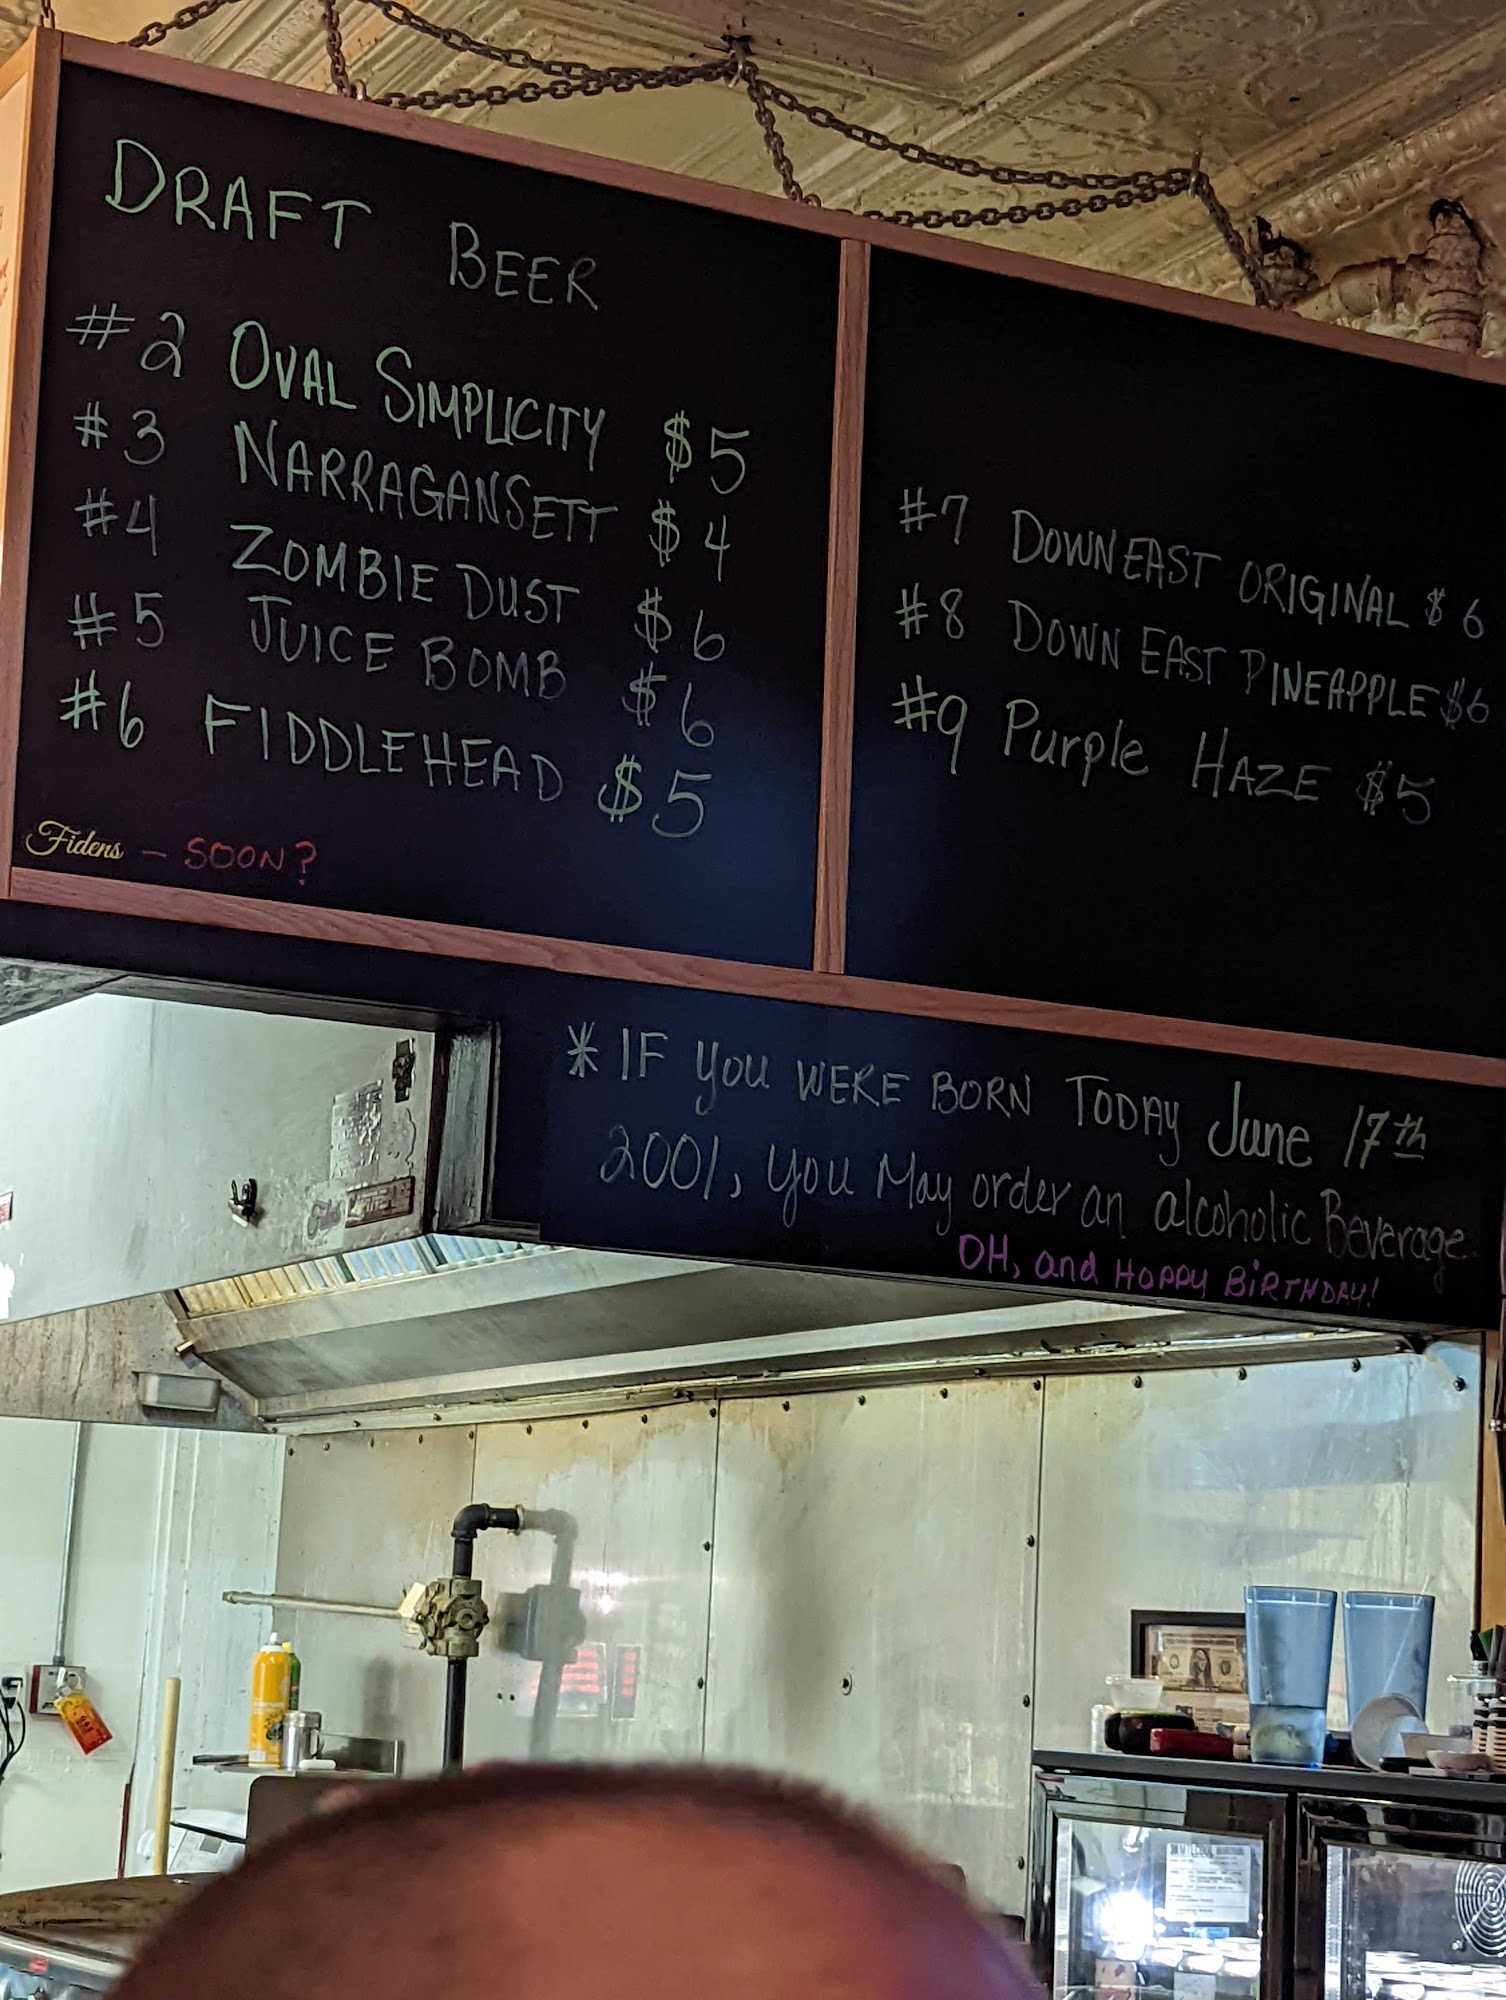 DRAFT BEER
#2 OVAL SIMPLICITY $5
#3 NARRAGANSETT $4
#4 ZOMBIE DUST $6
#5 JUICE BOMB $6
#6 FIDDLEHEAD $5
Fidens – SOON?
#7 DOWNEAST ORIGINAL $6
#8 DOWN EAST PINEAPPLE $6
#9 Purple HAZE $5
* IF you WERE BORN TODAY June 17th
2001, you May order an alcoholic Beverage
OH, and HAPPY BiRTHDAY!